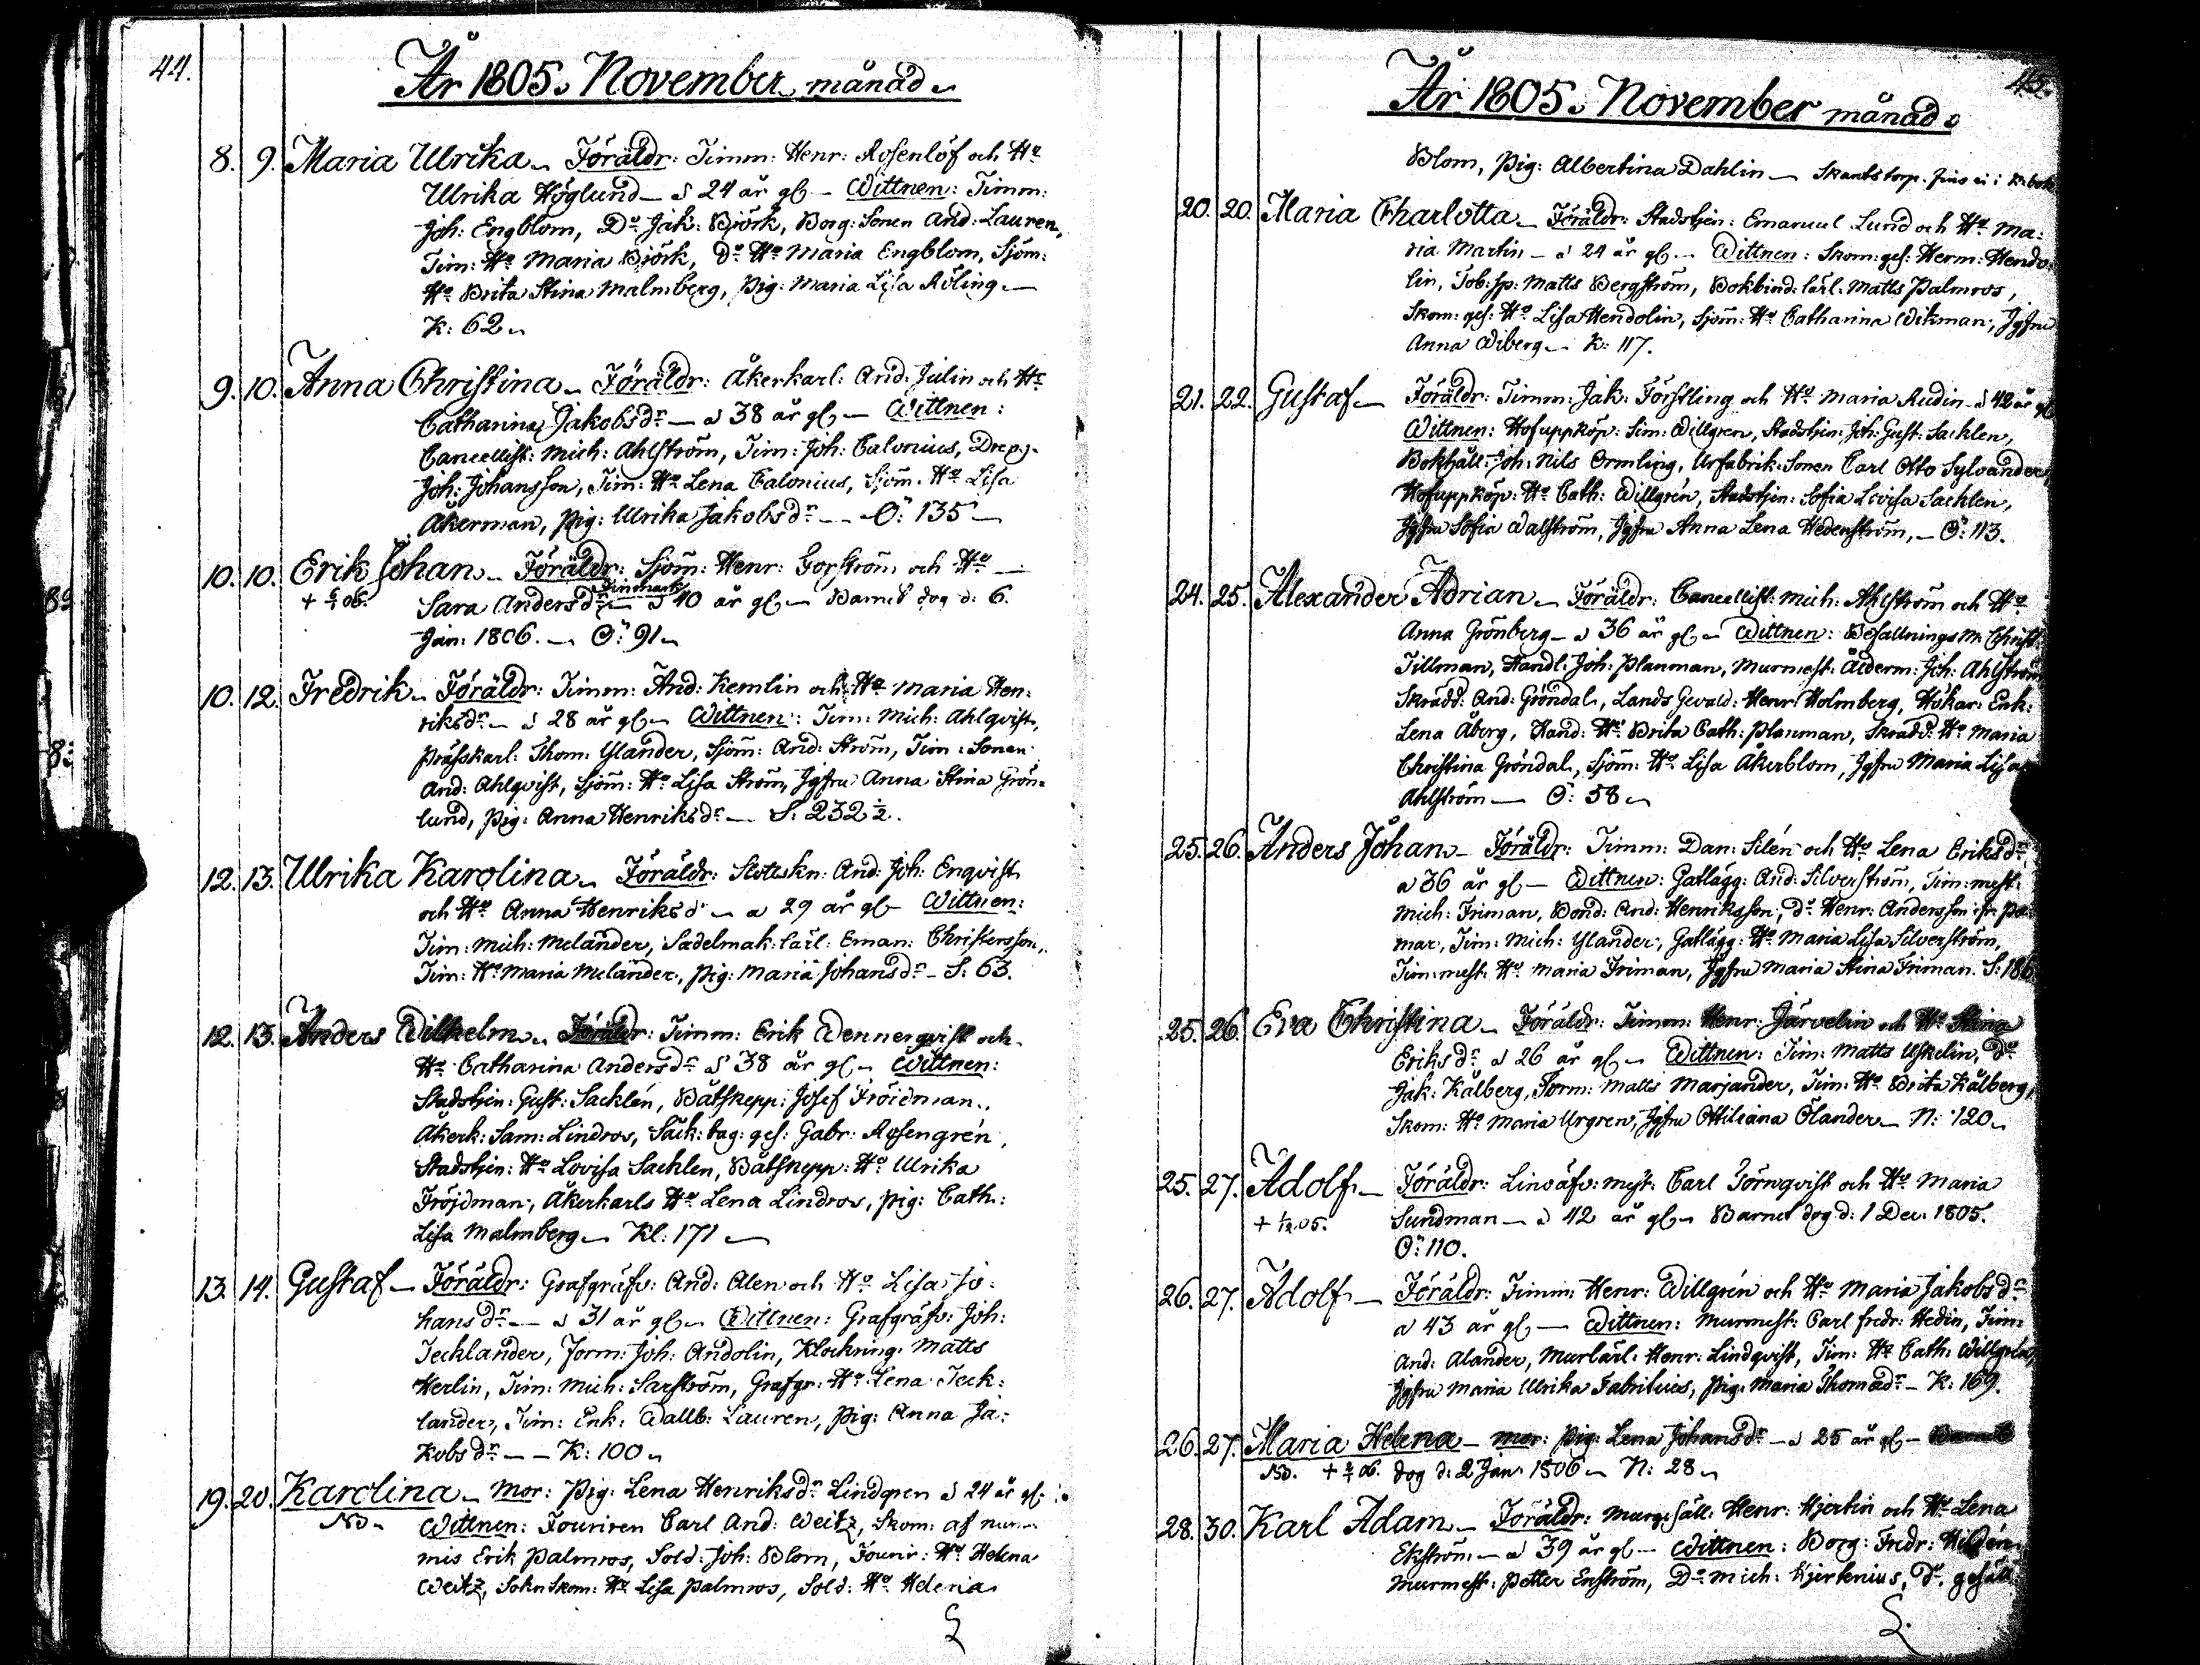 44.
År 1805. November månad.
8. 9. Maria Ulrika. Föräldr: Timm: Henr: Rosenlöf och Ho
Ulrika Höglund – à 24 år gl – Wittnen: Timm:
Joh: Engblom, Do Jak: Björk, Borg: Sonen And: Lauren,
Tim: Ho Maria Björk, Do Ho Maria Engblom, Sjöm:
Ho Brita Stina Malmberg, Pig: Maria Lisa Röling –
K: 62
9. 10. Anna Christina – Föräldr: Åkerkarl: And: Julin och Ho
Catharina Jakobsdr – à 38 år gl – Wittnen:
Cancellist: Mich: Ahlström, Tim: Joh: Calonius, Drg:
Joh: Johansson, Tim: Ho Lena Calonius, Sjöm: Ho Lisa
Åkerman, Pig: Ulrika Jakobsdr – Ö: 135 –
10. 10. Erik Johan – Föräldr: Sjöm: Henr: Gorström och Ho –
+ 6/1 06. Sara Andersdr Finmark à 40 år gl – Barnet dog d: 6.
Jan: 1806. – Ö: 91
10. 12. Fredrik – Föräldr: Timm: And: Kemlin och Ho Maria Hen:
riksdr – à 28 år gl – Wittnen: Tim: Mich: Ahlqvist,
Prässkarl: Thom: Ylander, Sjöm: And: Ström, Tim: Sonen
And: Ahlqvist, Sjöm: Ho Lisa Ström, Jgfru Anna Stina Grön-
lund, Pig: Anna Henriksdr – S: 232 1/2.
12. 13. Ulrika Karolina – Föräldr: Slotskn: And: Joh: Enqvist
och Ho Anna Henriksdr – à 29 år gl – Wittnen:
Tim: Mich: Melander, Sadelmak: lärl: Eman: Christersson,
Tim: Ho Maria Melander, Pig: Maria Johansdr – S: 63.
12. 13. Anders Wilhelm – Föräldr: Timm: Erik Wennerqvist och
Ho Catharina Andersdr à 38 år gl – Wittnen:
Stadstjen: Gust: Sacklén, Båtskepp: Josef Fröidman,
Åkerk: Sam: Lindros, Säck: bag: ges: Gabr: Rosengrén,
Stadstjen: Ho Lovisa Sacklen, Båtskepp: Ho Ulrika
Fröjdman, Åkerkarls Ho Lena Lindros, Pig: Cath:
Lisa Malmberg – Kl: 171 –
13. 14. Gustaf – Föräldr: Grafgräfv: And: Alen och Ho Lisa Jo:
hansdr – à 31 år gl – Wittnen: Grafgräfv: Joh:
Tecklander, Form: Joh: Andolin, Klockring: Matts
Herlin, Tim: Mich: Sarström, Grafgr: Ho Lena Teck:
lander, Tim: Enk: Wallb: Lauren, Pig: Anna Ja:
kobsdr – K: 100
19. 20. Karolina – Mor: Pig: Lena Henriksdr Lindgren à 24 år gl
NB. Wittnen: Fouriren Carl And: Weitz, Skom: af num:
mis Erik Palmros, Sold: Joh: Blom, Fourir: Ho Helena
Weitz, Sohn Skom: Ho Lisa Palmros, Sold: Ho Helena
45.
År 1805. November månad.
Blom, Pig: Albertina Dahlin – Skantstorp. fins ei i K: bok
20. 20. Maria Charlotta – Föräldr: Stadstjen: Emanuel Lund och Ho Ma:
ria Martin – à 24 år gl – Wittnen: Skom: ges: Herm: Hendo:
lin, Tob: sp: Matts Bergström, Bokbind: lärl: Matts Palmros,
Skom: ges: Ho Lisa Hendolin, Sjöm: Ho Catharina Wikman, Jgfru
Anna Wiberg – K: 117.
21. 22. Gustaf – Föräldr: Timm: Jak: Förstling och Ho Maria Rudin – à 42 år gl
Wittnen: Hofuppköp: Sim: Willgren, Stadstjen: Joh: Gust: Sacklen,
Bokhåll: Joh: Nils Ormling, Urfabrik: Sonen Carl Otto Sylvander,
Hofuppköp: Ho Cath: Willgrén, Stadstjen: Sofia Lovisa Sacklen,
Jgfru Sofia Walström, Jgfru Anna Lena Hedenström, – Ö: 113.
24. 25. Alexander Adrian – Föräldr: Cancellist: Mich: Ahlström och Ho
Anna Grönberg – à 36 år gl – Wittnen: Befallnings M: Christ
Tillman, Handl: Joh: Planman, Murmest: Ålderm: Joh: Ahlström
Skrädd: And: Gröndal, Lands Gevald: Henr: Holmberg, Hökar: Enk:
Lena Åberg, Hand: Ho Brita Cath: Planman, Skrädd: Ho Maria
Christina Gröndal, Sjöm: Ho Lisa Åkerblom, Jgfru Maria Lisa
Ahlström – Ö: 58
25. 26. Anders Johan – Föräldr: Timm: Dan: Silén och Ho Lena Eriksdr
à 36 år gl – Wittnen: Gatlägg: And: Silverström, Tim: mest:
Mich: Friman, Bond: And: Henriksson, do Henr: Andersson fr: Pa
mar, Tim: Mich: Ylander, Gatlägg: Ho Maria Lisa Silverström,
Tim: mest: Ho Maria Friman, Jgfru Maria Stina Friman. S: 186
25. 26. Eva Christina – Föräldr: Timm: Henr: Järvelin och Ho Stina
Eriksdr à 26 år gl – Wittnen: Tim: Matts Uskelin, do
Jak: Kålberg, Form: Matts Marjander, Tim: Ho Brita Kålberg,
Skom: Ho Maria Urgren, Jgfru Ottiliana Ölander – N: 120
25. 27. Adolf – Föräldr: Linväfv: mest: Carl Törnqvist och Ho Maria
+ 1/12 05. Sundman – à 42 år gl – Barnet dog d: 1 Dec: 1805.
Ö: 110.
26. 27. Adolf – Föräldr: Timm: Henr: Willgrén och Ho Maria Jakobsdr
à 43 år gl – Wittnen: Murmest: Carl Fredr: Hedin, Tim:
And: Alander, Murlärl: Henr: Lindqvist, Tim: Ho Cath: Willgrén,
Jgfru Maria Ulrika Fabritius, Pig: Maria Thomadr – K: 169.
26. 27. Maria Helena – Mor: Pig: Lena Johansdr – à 25 år gl – Barnet
NB. + 2/1 06. dog d: 2 Jan: 1806 – N: 28
28. 30. Karl Adam – Föräldr: Murgesäll: Henr: Hjertin och Ho Lena
Ekström – à 39 år gl – Wittnen: Borg: Fredr: Hildén,
Murmest: Petter Enström, Do Mich: Hjertenius, Do gesäll